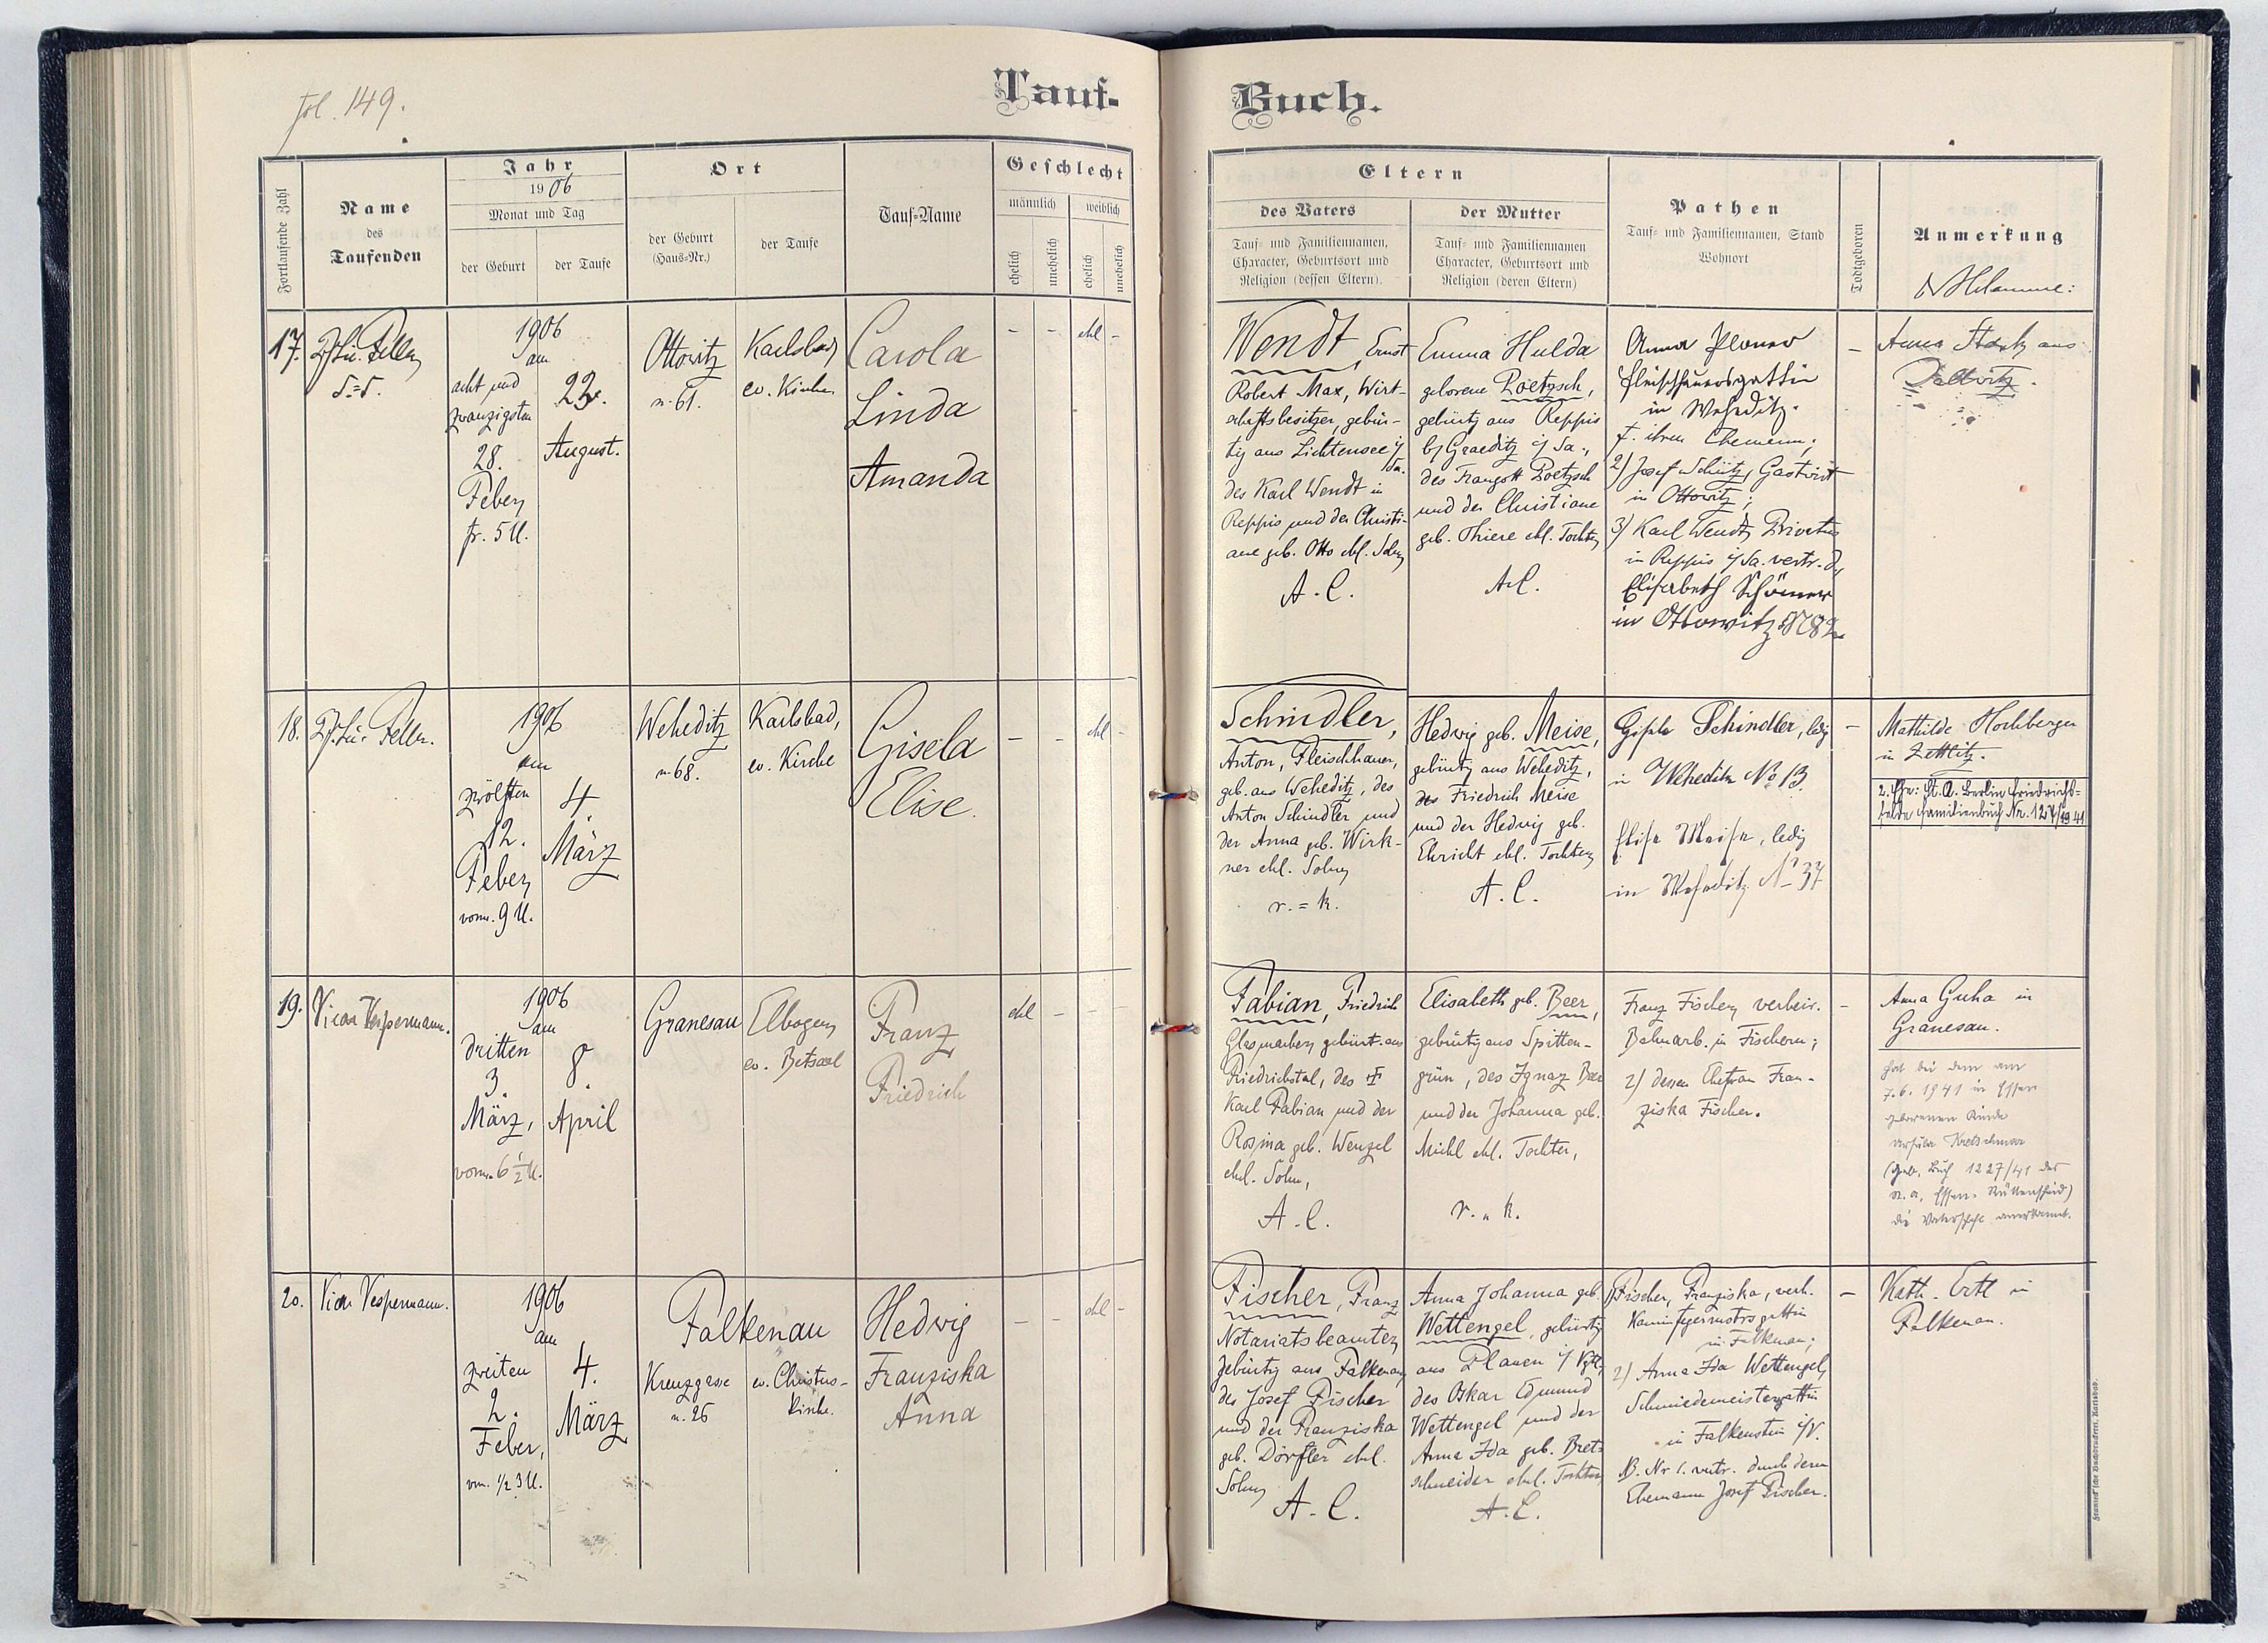 fol. 149.
Tauf-
Fortlaufende Zahl
Name
des
Taufenden
Jahr
1906
Monat und Tag
der Geburt
der Taufe
Ort
der Geburt
(Haus-Nr.)
der Taufe
Tauf-Name
Geschlecht
männlich
weiblich
ehelich
unehelich
ehelich
unehelich
17.
1906
am
acht und
zwanzigsten
28.
Feber
fr. 5 U.
August.
Ottowitz
n. 61.
Karlsbad
ev. Kirche
Carola
Linda
Amanda
- - ehl -
18.
Feller.
1906
am
zwölften
12.
Feber
vorm. 9 U.
4.
März
Weheditz
n. 68.
Karlsbad,
ev. Kirche
Gisela
Elise.
- - ehl -
19.
Vicar Vespermann.
1906
am
dritten
3.
März,
vorm. 6 1/2 U.
8.
April
Granesau
Elbogen
ev. Betsaal
Franz
Friedrich
ehl - - -
20.
Vicar Vespermann.
1906
am
zweiten
2.
Feber,
vm. 1/2 3 U.
4.
März
Falkenau
Kreuzgasse
n. 26
ev. Christus-
kirche.
Hedwig
Franziska
Anna
- - ehl -
Buch.
Eltern
des Vaters
Tauf- und Familiennamen,
Character, Geburtsort und
Religion (dessen Eltern).
der Mutter
Tauf- und Familiennamen
Character, Geburtsort und
Religion (deren Eltern)
Pathen
Tauf- und Familiennamen, Stand
Wohnort
Todtgeboren
Anmerkung
Hebamme:
Wendt, Ernst
Robert Max, Wirt-
schaftsbesitzer, gebür-
tig aus Lichtensee i/
Sa.
des Karl Wendt in
Reppis und der Christi-
ane geb. Otto ehl. Sohn
A. C.
Emma Hulda
geborene Poetzsch,
gebürtig aus Reppis
b/ Graeditz i/ Sa.,
des Traugott Poetzsch
und der Christiane
geb. Thiere ehl. Tochter
A.C.
Anna
Fleischhauersgattin
in Weheditz.
2) Josef Schütz, Gastwirt
in Ottowitz;
3) Karl Wendt, Privatier
in Reppis i/ Sa. vertr. d.
Elisabeth
in Ottowitz
-
Anna Stark aus
Dallwitz.
Schindler,
Anton, Fleischhauer,
geb. aus Weheditz, des
Anton Schindler und
der Anna geb. Wirk-
ner ehl. Sohn
r. = k.
Hedwig geb. Meise,
gebürtig aus Weheditz,
des Friedrich Meise
und der Hedwig geb.
Ehricht ehl. Tochter
A. C.
Gisela Schindler, ledig
in Weheditz No 13.
Elise Meise, ledig
in Weheditz No 37
-
Mathilde Hochberger
in Zettlitz.
2. Ehe: St. A. Berlin Friedrichs-
felde Familienbuch Nr. 127/1941
Fabian, Friedrich
Glasmacher, gebürt. aus
Friedrichstal, des †
Karl Fabian und der
Rosina geb. Wenzel
ehl. Sohn,
A. C.
Elisabeth geb. Beer,
gebürtig aus Spitten-
grün, des Ignaz Beer
und der Johanna geb.
Michl ehl. Tochter,
r. " k.
Franz Fischer, verheir.
Bahnarb. in Fischern;
2) dessen Ehefrau Fran-
ziska Fischer.
-
Anna Guha in
Granesau.
hat bei dem am
7.6. 1941 in Essen
geborenen Kinde
Ursula Kretschmar
(Geb. Buch 1227/41 des
St. A. Essen-Rüttenscheid)
die Vaterschaft anerkannt.
Fischer, Franz
Notariatsbeamter,
gebürtig aus Falkenau,
des Josef Fischer
und der Franziska
geb. Dörfler ehl.
Sohn
A. C.
Anna Johanna geb.
Wettengel, gebürtig
aus Plauen i/ Vgtl.,
des Oskar Edmund
Wettengel und der
Anna Ida geb. Bret-
schneider ehl. Tochter,
A. C.
1) Fischer, Franziska, verh.
in Falkenau;
2) Anna Ida Wettengel,
Schmiedemeistersgattin
in Falkenstein i/V.
NB. Nr 1. vertr. durch deren
Ehemann Josef Fischer.
-
Kath. Ertl in
Falkenau.